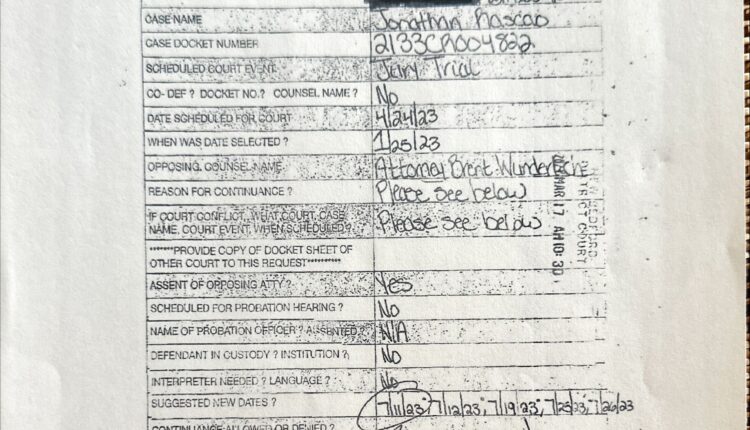 CASE NAME Jonathan
CASE DOCKET NUMBER 2133CR004822
SCHEDULED COURT EVENT Jury Trial
CO- DEF ? DOCKET NO.? COUNSEL NAME ? No
DATE SCHEDULED FOR COURT 4/24/23
WHEN WAS DATE SELECTED ? 1/25/23
OPPOSING COUNSEL NAME Attorney Brent
REASON FOR CONTINUANCE ? Please see below
IF COURT CONFLICT, WHAT COURT, CASE
NAME, COURT EVENT, WHEN SCHEDULED ? Please see below
*******PROVIDE COPY OF DOCKET SHEET OF
OTHER COURT TO THIS REQUEST**********
ASSENT OF OPPOSING ATTY ? Yes
SCHEDULED FOR PROBATION HEARING ? No
NAME OF PROBATION OFFICER ? ASSENTED ? N/A
DEFENDANT IN CUSTODY ? INSTITUTION ? No
INTERPRETER NEEDED ? LANGUAGE ? No
SUGGESTED NEW DATES ? 7/11/23; 7/12/23; 7/19/23; 7/25/23; 7/26/23
CONTINUANCE ALLOWED OR DENIED ?
MAR 17 AM 10: 30
TRICT COURT